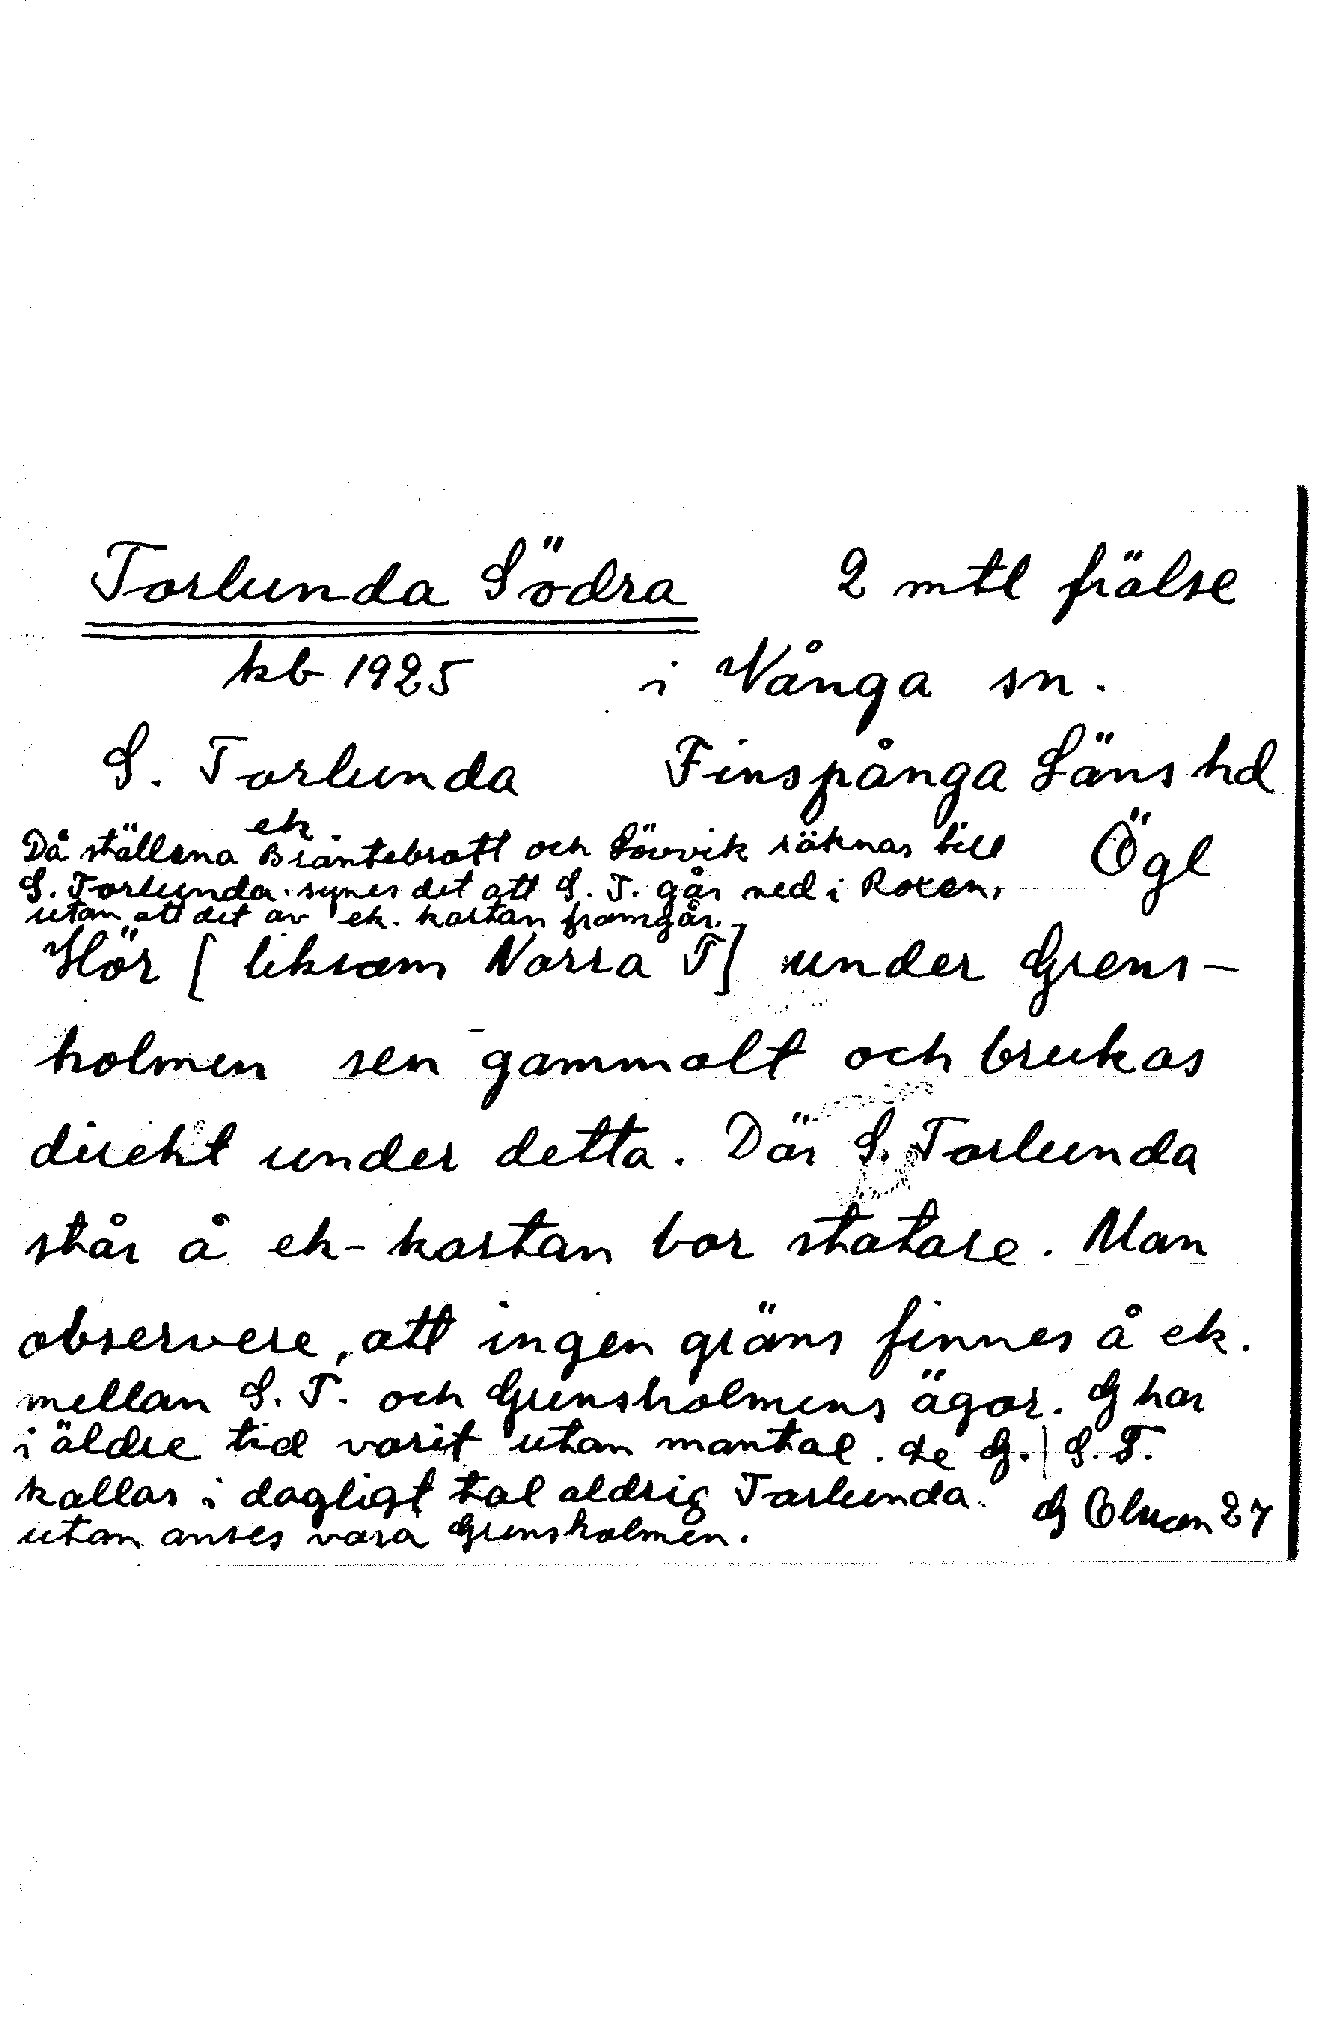 Torlunda Södra 2 mtl frälse
kb 1925 i Vånga sn.
S. Torlunda Finspånga Läns hd
ek.
Då ställena Bräntebratt och Lövvik räknas till Ögl
S. Torlunda synes det att S. T. går ned i Roxen,
utan att det av ek. kartan framgår.
Hör [liksom Norra T] under Grens-
holmen sen gammalt och brukas
direkt under detta. Där S. Torlunda
står å ek-kartan bor statare. Man
observere, att ingen gräns finnes å ek.
mellan S. T. och Grensholmens ägor. G har
i äldre tid varit utan mantal. se G. | S. T.
kallas i dagligt tal aldrig Torlunda.
utan anses vara Grensholmen. G 27